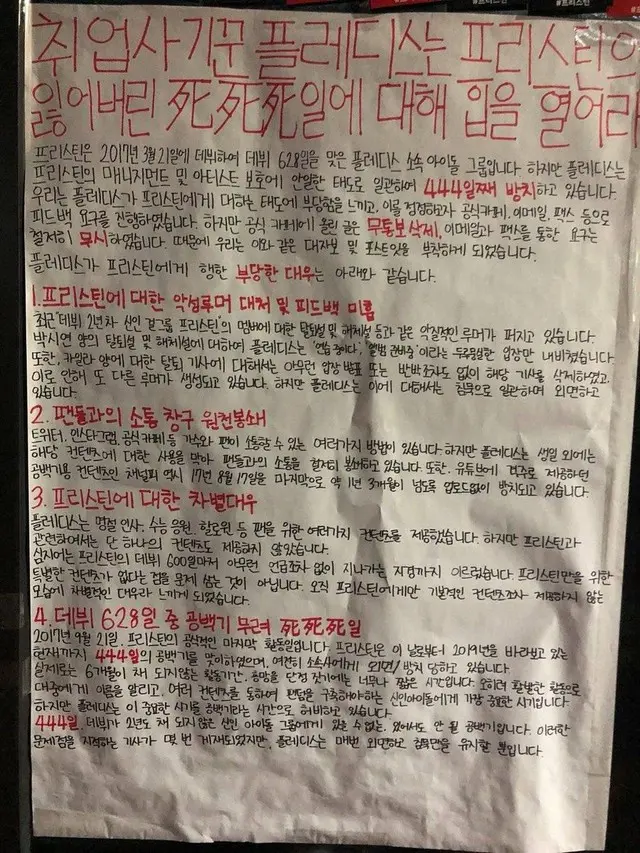 #프리스틴
취업사기꾼 플레디스는 프리스틴의
잃어버린 死死死일에 대해 입을 열어라
프리스틴은 2017년 3월 21일에 데뷔하여 데뷔 628일을 맞은 플레디스 소속 아이돌 그룹입니다. 하지만 플레디스는
프리스틴의 매니지먼트 및 아티스트 보호에 안일한 태도로 일관하여 444일째 방치하고 있습니다.
우리는 플레디스가 프리스틴에게 대하는 태도에 부당함을 느끼고, 이를 정정하고자 공식카페, 이메일, 팩스 등으로
피드백 요구를 진행하였습니다. 하지만 공식 카페에 올린 글은 무통보삭제, 이메일과 팩스를 통한 요구는
철저히 무시하였습니다. 때문에 우리는 이와 같은 대자보 및 포스트잇을 부착하게 되었습니다.
플레디스가 프리스틴에게 행한 부당한 대우는 아래와 같습니다.
1. 프리스틴에 대한 악성루머 대처 및 피드백 미흡
최근 '데뷔 2년차 신인 걸그룹 프리스틴'의 멤버에 대한 탈퇴설 및 해체설 등과 같은 악질적인 루머가 퍼지고 있습니다.
박시연 양의 탈퇴설 및 해체설에 대하여 플레디스는 '연습 중이다', '앨범 준비중'이라는 두루뭉실한 입장만 내비쳤습니다.
또한, 카일라 양에 대한 탈퇴 기사에 대해서는 아무런 입장 발표 또는 반박조차도 없이 해당 기사를 삭제하였고,
이로 인해 또 다른 루머가 생성되고 있습니다. 하지만 플레디스는 이에 대해서는 침묵으로 일관하며 외면하고
있습니다.
2. 팬들과의 소통 창구 원천봉쇄
트위터, 인스타그램, 공식 카페 등 가수와 팬이 소통할 수 있는 여러가지 방법이 있습니다. 하지만 플레디스는 생일 외에는
해당 컨텐츠에 대한 사용을 막아 팬들과의 소통을 철저히 봉쇄하고 있습니다. 또한, 유튜브에 격주로 제공하던
공백기용 컨텐츠인 채널피 역시 17년 8월 17일을 마지막으로 약 1년 3개월이 넘도록 업로드없이 방치되고 있습니다.
3. 프리스틴에 대한 차별대우
플레디스는 명절 인사, 수능 응원, 할로윈 등 팬을 위한 여러가지 컨텐츠를 제공했습니다. 하지만 프리스틴과
관련하여서는 단 하나의 컨텐츠도 제공하지 않았습니다.
심지어는 프리스틴의 데뷔 600일마저 아무런 언급조차 없이 지나가는 지경까지 이르렀습니다. 프리스틴만을 위한
특별한 컨텐츠가 없다는 점을 문제 삼는 것이 아닙니다. 오직 프리스틴에게만 기본적인 컨텐츠조차 제공하지 않는
모습에 차별적인 대우라 느끼게 되었습니다.
4. 데뷔 628일 중 공백기 무려 死死死일
2017년 9월 21일. 프리스틴의 공식적인 마지막 활동일입니다. 프리스틴은 이 날로부터 2019년을 바라보고 있는
현재까지 444일의 공백기를 맞이하였으며, 여전히 소속사에게 외면/방치 당하고 있습니다.
실제로는 6개월이 채 되지않는 활동기간. 흥망을 단정 짓기에는 너무나 짧은 시간입니다. 오히려 활발한 활동으로
대중에게 이름을 알리고, 여러 컨텐츠를 통하여 팬덤을 구축해야하는 신인아이돌에게 가장 중요한 시기입니다.
하지만 플레디스는 이 중요한 시기를 공백기라는 시간으로 허비하고 있습니다.
444일. 데뷔가 2년도 채 되지않은 신인 아이돌 그룹에게 있을 수 없는, 있어서도 안 될 공백기입니다. 이러한
문제점을 지적하는 기사가 몇 번 게재되었지만, 플레디스는 매번 외면하고 침묵만을 유지할 뿐입니다.